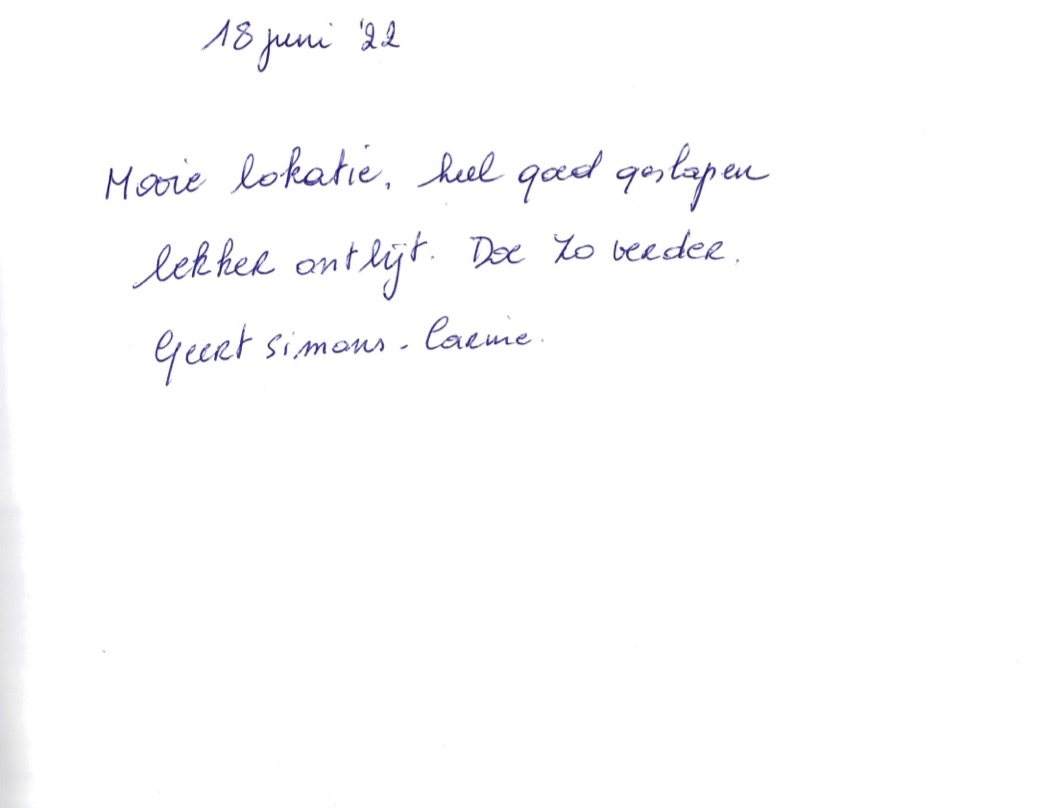 18 juni '22
Mooie lokatie, heel goed geslapen
lekker ontbijt. Doe zo verder.
Geert Simons - Carine.